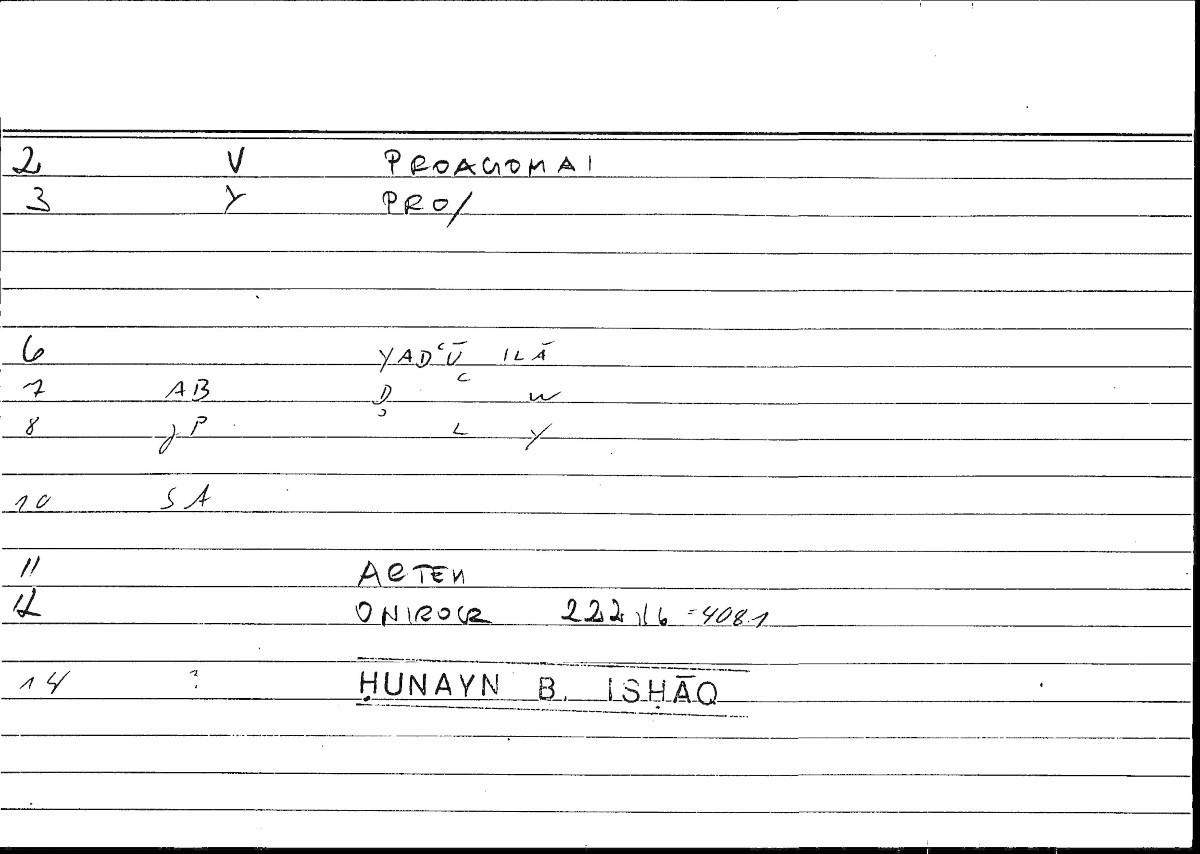 2 V PROAGOMAI
3 Y PRO/
6 YADʿŪ ILĀ
7 AB D ʿ W
8 JP ʾ L Y
10 SA
11 ARTEM
12 ONIROCR 222,16 = 408.1
14 ? ḤUNAYN B. ISḤĀQ